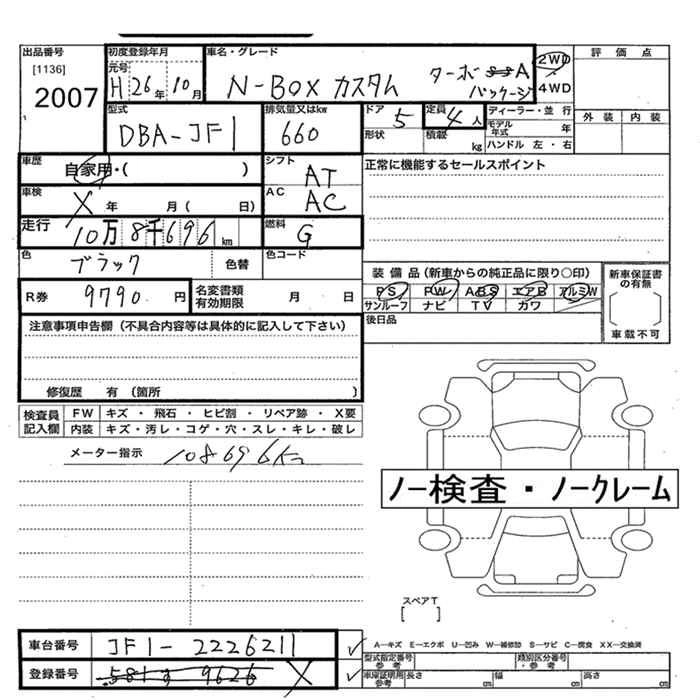 出品番号
[1136]
2007
初度登録年月
元号
H 26年 10月
車名・グレード
N-BOX カスタム ターボ SSA
パッケージ
2WD
4WD
評価点
外装 内装
型式
DBA-JF1
排気量又はkw
660
ドア
5
形状
定員
4人
積載 kg
ディーラー・並行
モデル年式 年
ハンドル 左・右
車歴
自家用・( )
シフト
AT
正常に機能するセールスポイント
車検
X 年 月( 日)
AC
AC
走行
10万8千696km
燃料
G
色
ブラック
色替
色コード
R券 9790円
名変書類
有効期限 月 日
装備品(新車からの純正品に限り○印)
PS PW ABS エアB アルミW
サンルーフ ナビ TV カワ
後日品
新車保証書
の有無
車載不可
注意事項申告欄(不具合内容等は具体的に記入して下さい)
修復歴 有(箇所 )
検査員
記入欄
FW キズ・飛石・ヒビ割・リペア跡・X要
内装 キズ・汚レ・コゲ・穴・スレ・キレ・破レ
メーター指示 108696Km
ノー検査・ノークレーム
スペアT
[ ]
車台番号 JF1-2226211
登録番号 581す 9626 X
A―キズ E―エクボ U―凹み W―補修跡 S―サビ C―腐食 XX―交換済
型式指定番号
参考
類別区分番号
参考
車庫証明用
参考
長さ cm 幅 cm 高さ cm